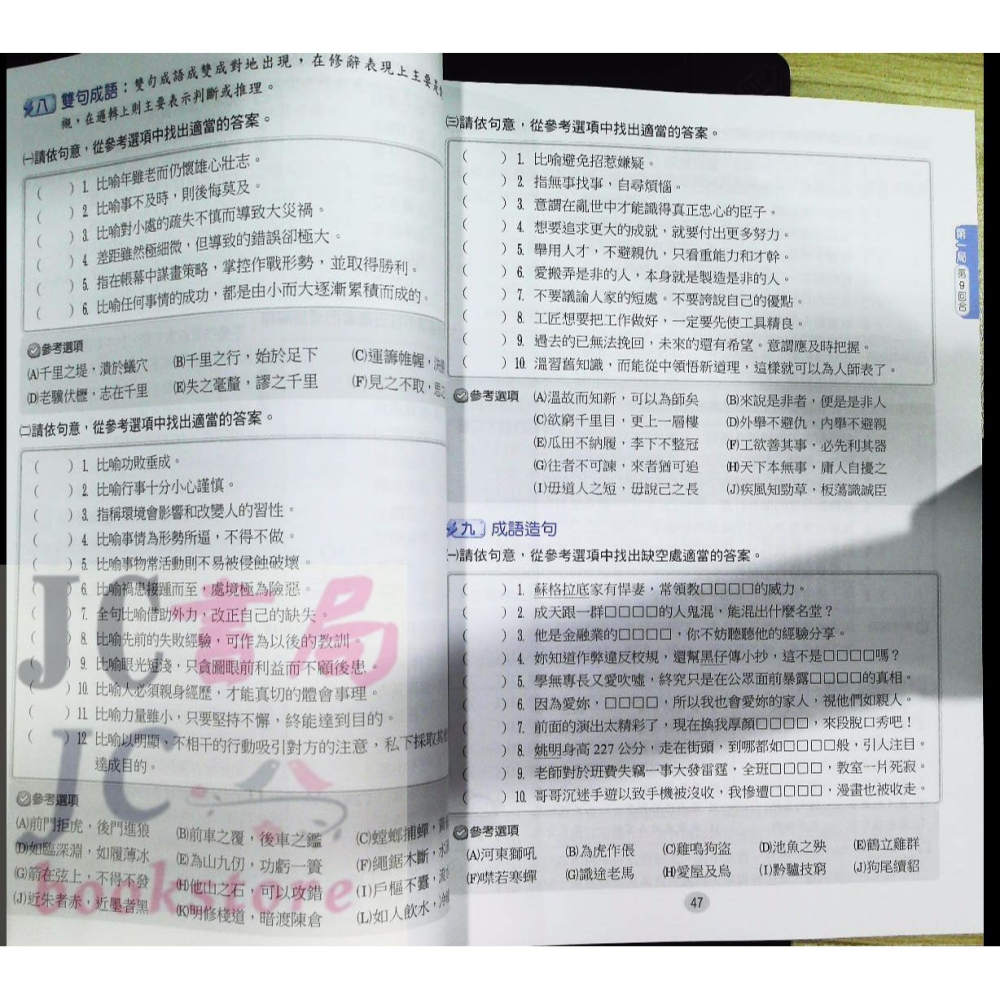 八 雙句成語：雙句成語成雙成對地出現，在修辭表現上主要是
襯，在邏輯上則主要表示判斷或推理。
㈠請依句意，從參考選項中找出適當的答案。
（　）1. 比喻年雖老而仍懷雄心壯志。
（　）2. 比喻事不及時，則後悔莫及。
（　）3. 比喻對小處的疏失不慎而導致大災禍。
（　）4. 差距雖然極細微，但導致的錯誤卻極大。
（　）5. 指在帳幕中謀畫策略，掌控作戰形勢，並取得勝利。
（　）6. 比喻任何事情的成功，都是由小而大逐漸累積而成的。
參考選項
(A)千里之堤，潰於蟻穴 (B)千里之行，始於足下 (C)運籌帷幄，決勝
(D)老驥伏櫪，志在千里 (E)失之毫釐，謬之千里 (F)見之不取，思之
㈡請依句意，從參考選項中找出適當的答案。
（　）1. 比喻功敗垂成。
（　）2. 比喻行事十分小心謹慎。
（　）3. 指稱環境會影響和改變人的習性。
（　）4. 比喻事情為形勢所逼，不得不做。
（　）5. 比喻事物常活動則不易被侵蝕破壞。
（　）6. 比喻禍患接踵而至，處境極為險惡。
（　）7. 全句比喻借助外力，改正自己的缺失。
（　）8. 比喻先前的失敗經驗，可作為以後的教訓。
（　）9. 比喻眼光短淺，只貪圖眼前利益而不顧後患。
（　）10. 比喻人必須親身經歷，才能真切的體會事理。
（　）11 比喻力量雖小，只要堅持不懈，終能達到目的。
（　）12 比喻以明顯、不相干的行動吸引對方的注意，私下採取其他
達成目的。
參考選項
(A)前門拒虎，後門進狼 (B)前車之覆，後車之鑑 (C)螳螂捕蟬，黃
(D)如臨深淵，如履薄冰 (E)為山九仞，功虧一簣 (F)繩鋸木斷，水
(G)箭在弦上，不得不發 (H)他山之石，可以攻錯 (I)戶樞不蠹，流
(J)近朱者赤，近墨者黑 (K)明修棧道，暗渡陳倉 (L)如人飲水，冷
㈢請依句意，從參考選項中找出適當的答案。
（　）1. 比喻避免招惹嫌疑。
（　）2. 指無事找事，自尋煩惱。
（　）3. 意謂在亂世中才能識得真正忠心的臣子。
（　）4. 想要追求更大的成就，就要付出更多努力。
（　）5. 舉用人才，不避親仇，只看重能力和才幹。
（　）6. 愛搬弄是非的人，本身就是製造是非的人。
（　）7. 不要議論人家的短處。不要誇說自己的優點。
（　）8. 工匠想要把工作做好，一定要先使工具精良。
（　）9. 過去的已無法挽回，未來的還有希望。意謂應及時把握。
（　）10. 溫習舊知識，而能從中領悟新道理，這樣就可以為人師表了。
參考選項 (A)溫故而知新，可以為師矣 (B)來說是非者，便是是非人
(C)欲窮千里目，更上一層樓 (D)外舉不避仇，內舉不避親
(E)瓜田不納履，李下不整冠 (F)工欲善其事，必先利其器
(G)往者不可諫，來者猶可追 (H)天下本無事，庸人自擾之
(I)毋道人之短，毋說己之長 (J)疾風知勁草，板蕩識誠臣
九 成語造句
㈠請依句意，從參考選項中找出缺空處適當的答案。
（　）1. 蘇格拉底家有悍妻，常領教□□□□的威力。
（　）2. 成天跟一群□□□□的人鬼混，能混出什麼名堂？
（　）3. 他是金融業的□□□□，你不妨聽聽他的經驗分享。
（　）4. 妳知道作弊違反校規，還幫黑仔傳小抄，這不是□□□□嗎？
（　）5. 學無專長又愛吹噓，終究只是在公眾面前暴露□□□□的真相。
（　）6. 因為愛妳，□□□□，所以我也會愛妳的家人，視他們如親人。
（　）7. 前面的演出太精彩了，現在換我厚顏□□□□，來段脫口秀吧！
（　）8. 姚明身高 227 公分，走在街頭，到哪都如□□□□般，引人注目。
（　）9. 老師對於班費失竊一事大發雷霆，全班□□□□，教室一片死寂。
（　）10. 哥哥沉迷手遊以致手機被沒收，我慘遭□□□□，漫畫也被收走。
參考選項
(A)河東獅吼 (B)為虎作倀 (C)雞鳴狗盜 (D)池魚之殃 (E)鶴立雞群
(F)噤若寒蟬 (G)識途老馬 (H)愛屋及烏 (I)黔驢技窮 (J)狗尾續貂
47
第一局 第9回合
JC書局
JC
bookstore